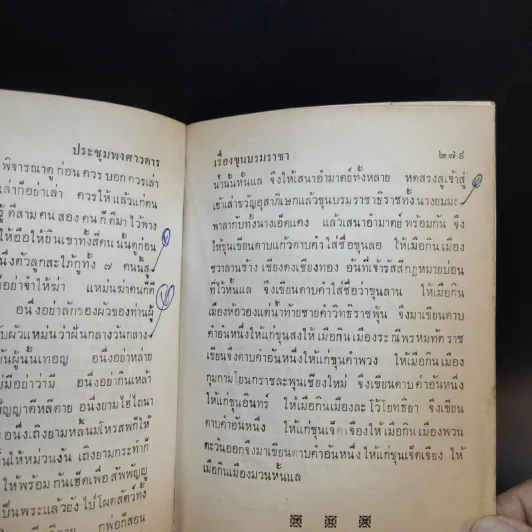 ประชุมพงศาวดาร
พิจารณาดูก่อน ควรบอกควรเล่า
เล่าก็อย่าเล่า ควรให้แล้วแก่คน
รู้ คีสามคน สองคน ก็คีมา ไว้พาง
ให้อือให้ยินเขาทั้งสี่คน นั้นดูก่อน
นึ่งตัวลูกสะใภ้กูทั้ง ๗ คนนั้นสู
ก็อย่าจำให้ฆ่า แหม่นฆ่าคนก็ดี
อนึ่งอย่าลักของผัวของท่านผู้
บผัวแหม่นว่าผั่นกลางวันกลาง
นผู้นั้นเทอญ อนึ่งอย่าหลาย
มีอย่าว่ามี อนึ่งอย่ากินเหล้า
ญญาคีหลีดาย อนึ่งยามไฮไถนา
อนึ่งเถิงยามหลิ้นมโหรสพก็ให้
นให้หม่วนงัน เถิงยามกระทำก็
ให้พร้อมกันเฮ็ดเพื่อสัพพัญญู
เป็นพระแล้วยังไปโผดสัตว์ทั้ง
ก็พ่อก็สอน
เรื่องขุนบรมราชา ๒๗๙
น้ำนั้นหั้นแล จึงให้เสนาอำมาตย์ทั้งหลาย หดสรงสูเจ้าสู่
เข้าเล่าขวัญอุสาภิเษกแล้วขุนบรมราชาธิราชทั้งนางยมมะ-
พาลากับทั้งนางเอ็ดแคง แล้วเสนาอำมาตย์พร้อมกัน จึง
ให้ขุนเขียนดาบแก้วดาบคำใส่ชื่อขุนลอ ให้เมือกินเมือง
ชวาลานช้าง เชียงดงเชียงทอง อันที่เจ้ารัสสีกฎหมายบ่อน
ที่ไว้หั้นแล จึงเขียนดาบคำใส่ชื่อว่าขุนลาน ให้เมือกิน
เมืองหัวของแต่น้ำท้ายชายคำวิทธิราชพุ้น จึงมาเขียนดาบ
คำอันหนึ่งให้แก่ขุนสงให้เมือกินเมืองระณีพรหมทัตราช
เขียนจึงดาบคำอันหนึ่งให้แก่ขุนคำพวง ให้เมือกินเมือง
กุมกามโยนกราชละพุนเชียงใหม่ จึงเขียนดาบคำอันหนึ่ง
ให้แก่ขุนอินทร์ ให้เมือกินเมืองละโว้โยทธิยา จึงเขียน
ดาบคำอันหนึ่ง ให้แก่ขุนเจ็ดเจืองให้เมือกินเมืองพวน
ตะวันออกจึงมาเขียนดาบคำอันหนึ่งให้แก่ขุนเจ็ดเจือง ให้
เมือกินเมืองมวนหั้นแล